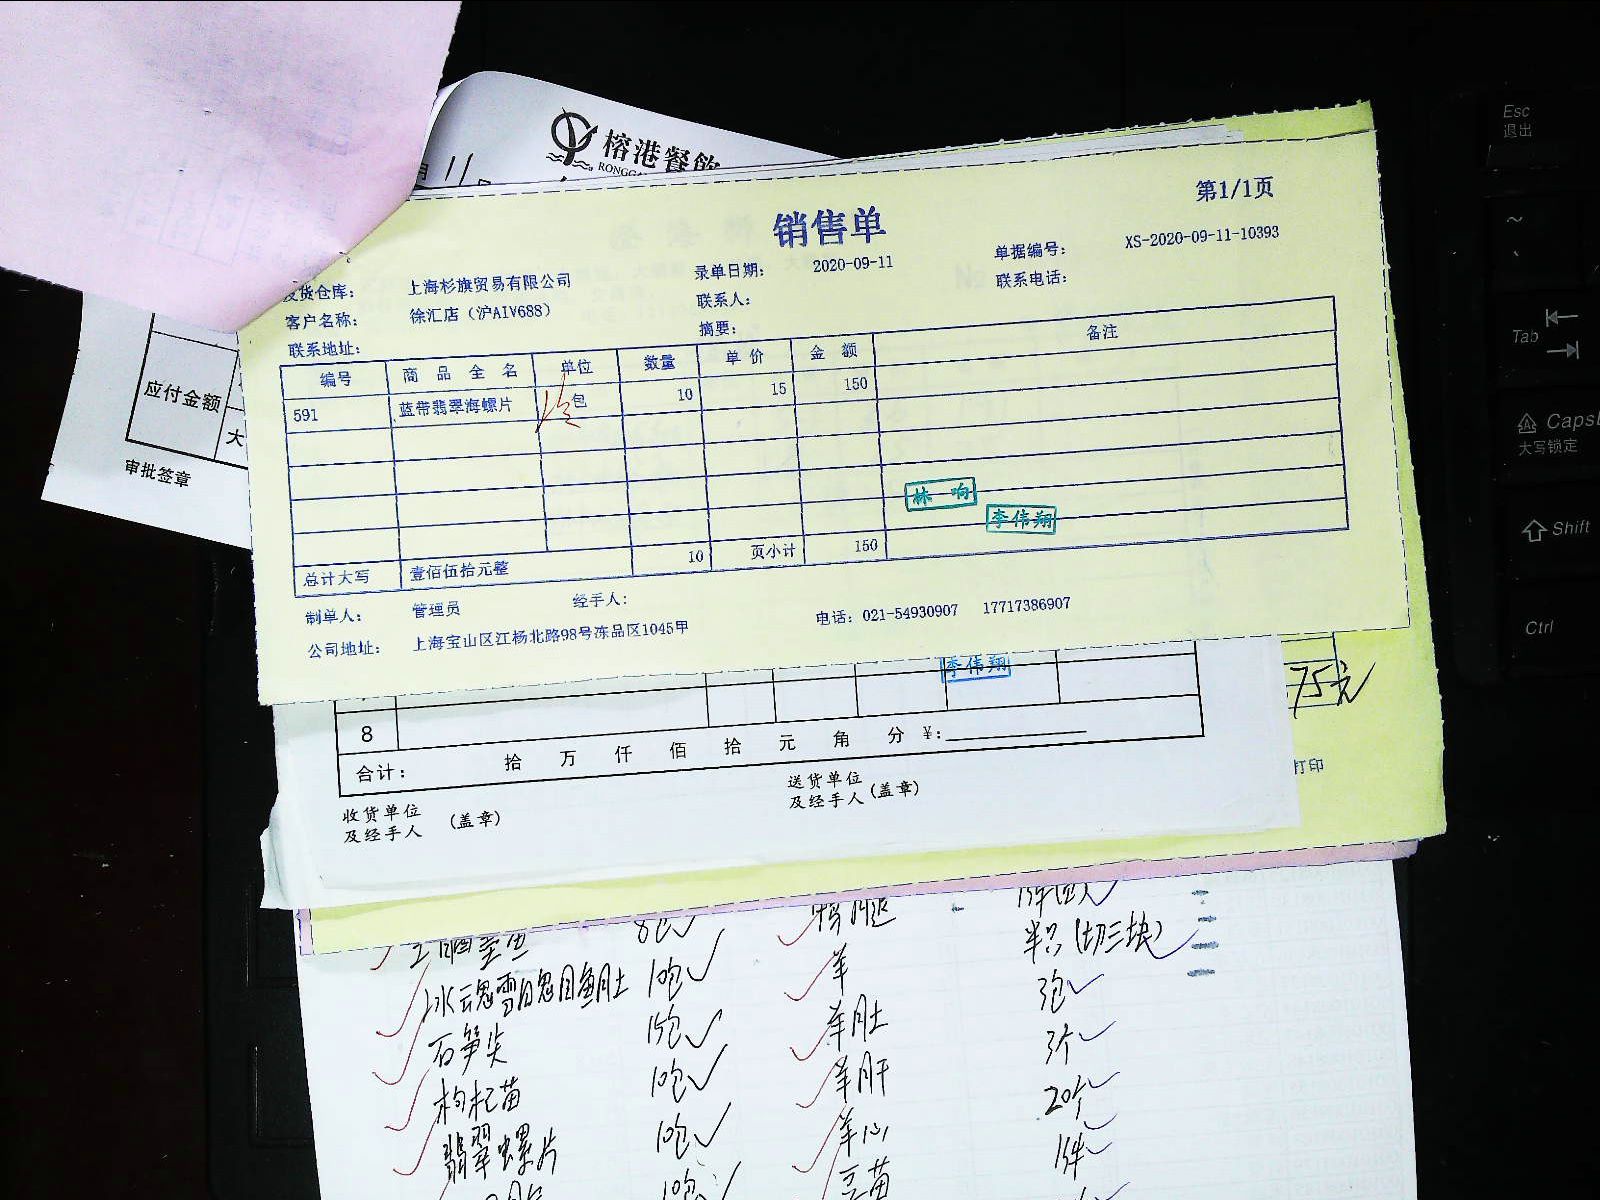 榕港餐飲
月11日
销售单
第1/1页
发货仓库： 上海杉旗贸易有限公司 录单日期： 2020-09-11 单据编号： XS-2020-09-11-10393
客户名称： 徐汇店（沪AIV688） 联系人： 联系电话：
联系地址： 摘要：
编号 商品全名 单位 数量 单价 金额 备注
591 蓝带翡翠海螺片 包 10 15 150
林响
李伟翔
总计大写 壹佰伍拾元整 10 页小计 150
制单人： 管理员 经手人：
公司地址： 上海宝山区江杨北路98号冻品区1045甲 电话：021-54930907 17717386907
应付金额
大
审批签章
李伟翔
75元
8
合计： 拾 万 仟 佰 拾 元 角 分 ¥：
打印
收货单位
及经手人 （盖章）
送货单位
及经手人（盖章）
8包
羊 半只（切三块）
10包
石笋尖 15包 羊肚 3包
枸杞苗 10包 羊肝 3个
翡翠螺片 10包 羊心 20个
10包 豆苗 1件
Esc
退出
~
Tab
Caps
大写锁定
Shift
Ctrl